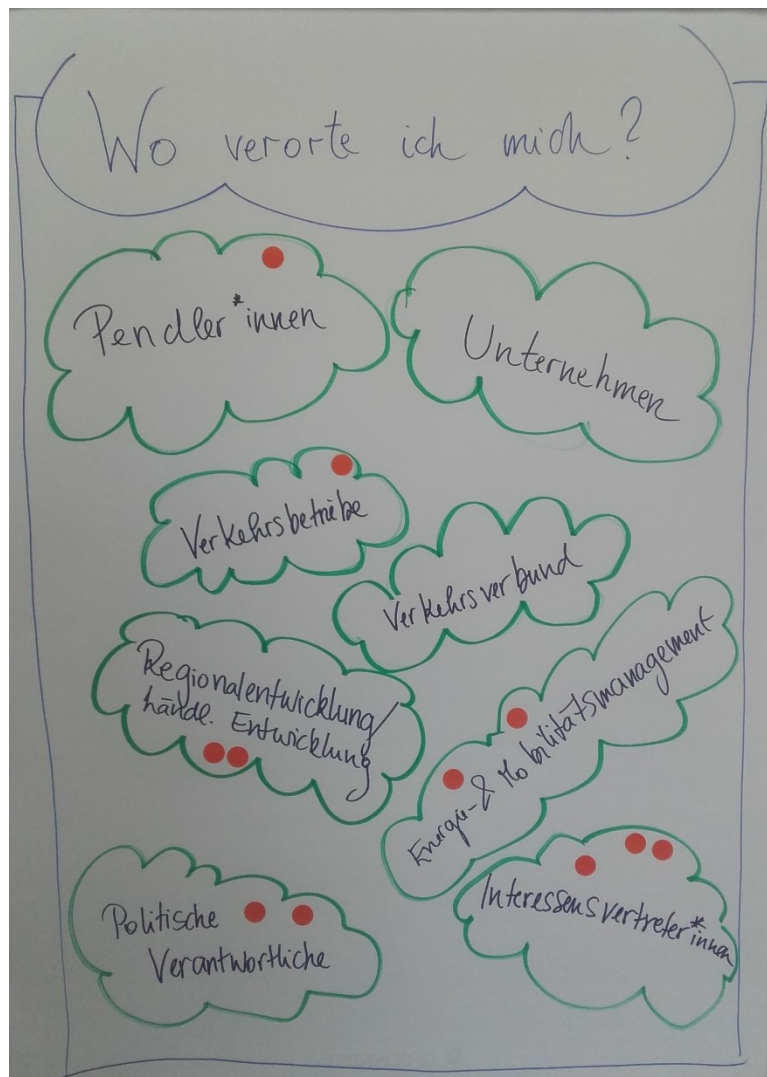 Wo verorte ich mich?
Pendler*innen
Unternehmen
Verkehrsbetriebe
Verkehrsverbund
Regionalentwicklung/
ländl. Entwicklung
Energie- & Mobilitätsmanagement
Politische
Verantwortliche
Interessensvertreter*innen